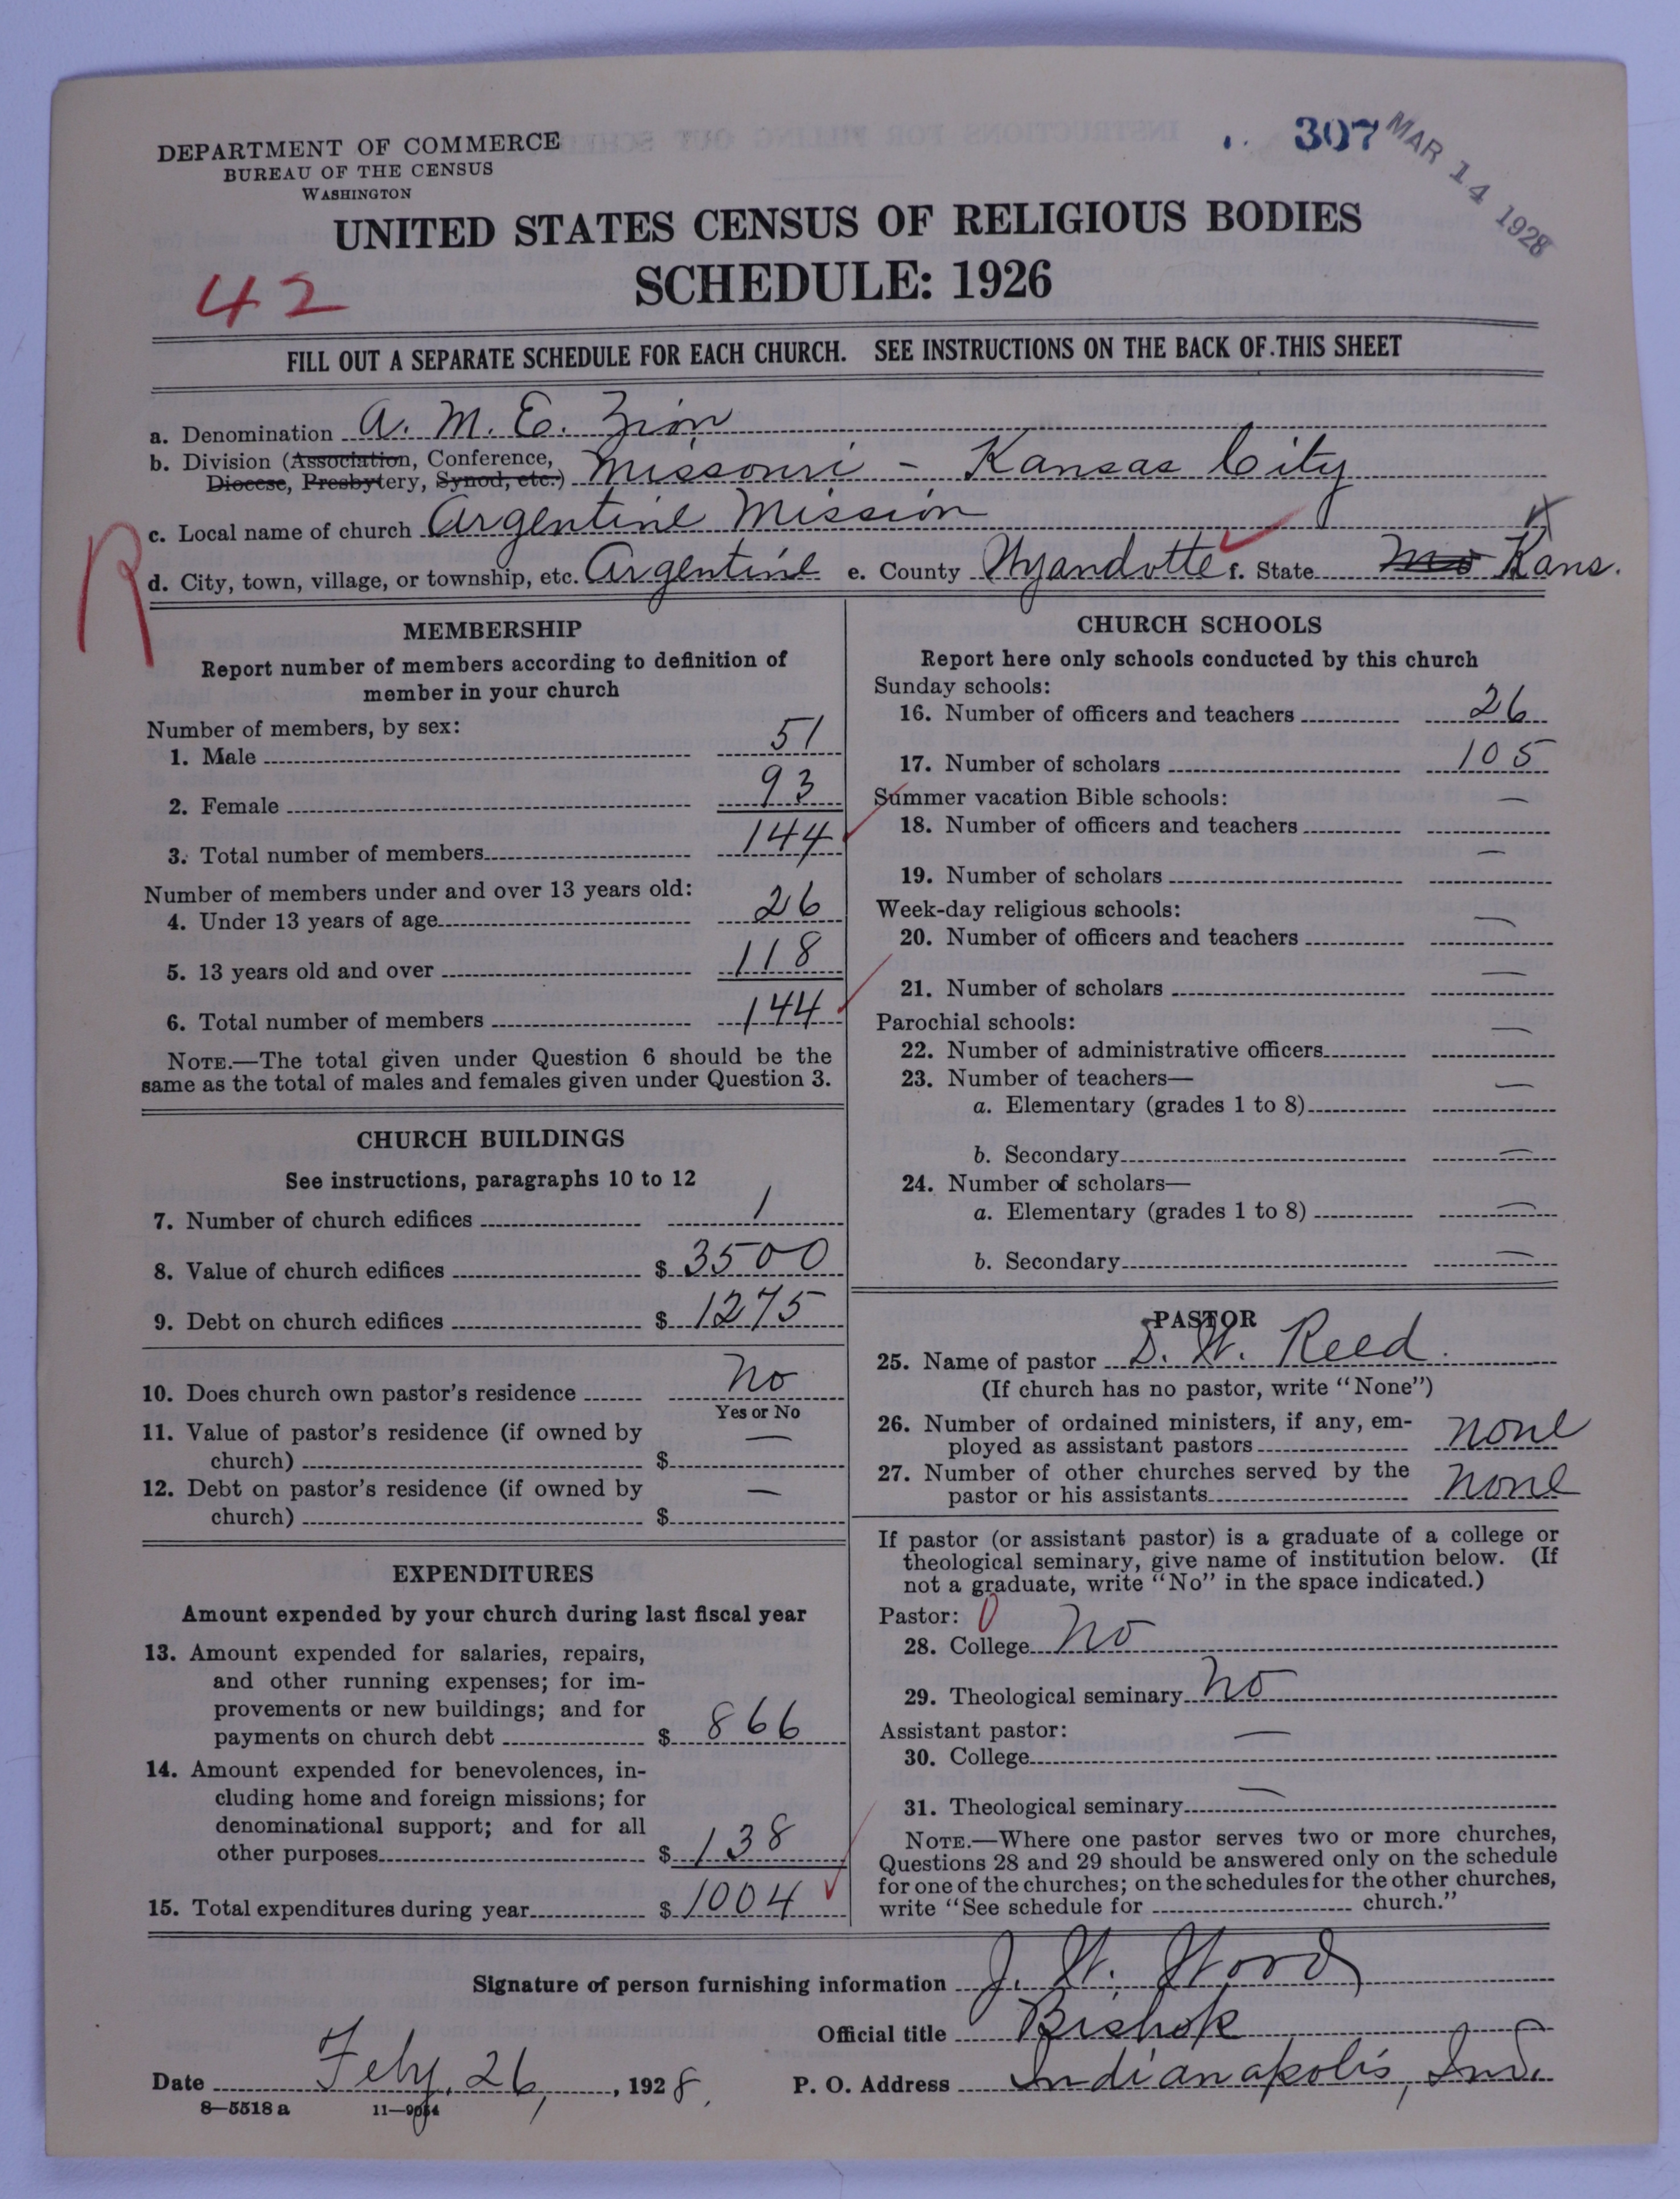 DEPARTMENT OF COMMERCE
BUREAU OF THE CENSUS
WASHINGTON
307
MAR 14 1928
UNITED STATES CENSUS OF RELIGIOUS BODIES
SCHEDULE: 1926
42
FILL OUT A SEPARATE SCHEDULE FOR EACH CHURCH. SEE INSTRUCTIONS ON THE BACK OF THIS SHEET
a. Denomination A. M. E. Zion
b. Division (Association, Conference,
Diocese, Presbytery, Synod, etc.) Missouri - Kansas City
c. Local name of church Argentine Mission
R
d. City, town, village, or township, etc. Argentine e. County Wyandotte f. State Mo Kans.
MEMBERSHIP
Report number of members according to definition of
member in your church
Number of members, by sex:
1. Male 51
2. Female 93
3. Total number of members 144
Number of members under and over 13 years old:
4. Under 13 years of age 26
5. 13 years old and over 118
6. Total number of members 144
NOTE.—The total given under Question 6 should be the
same as the total of males and females given under Question 3.
CHURCH BUILDINGS
See instructions, paragraphs 10 to 12
7. Number of church edifices 1
8. Value of church edifices $ 3500
9. Debt on church edifices $ 1275
10. Does church own pastor's residence No
Yes or No
11. Value of pastor's residence (if owned by
church) $ —
12. Debt on pastor's residence (if owned by
church) $ —
EXPENDITURES
Amount expended by your church during last fiscal year
13. Amount expended for salaries, repairs,
and other running expenses; for im-
provements or new buildings; and for
payments on church debt $ 866
14. Amount expended for benevolences, in-
cluding home and foreign missions; for
denominational support; and for all
other purposes $ 138
15. Total expenditures during year $ 1004
CHURCH SCHOOLS
Report here only schools conducted by this church
Sunday schools:
16. Number of officers and teachers 26
17. Number of scholars 105
Summer vacation Bible schools:
18. Number of officers and teachers —
19. Number of scholars —
Week-day religious schools:
20. Number of officers and teachers —
21. Number of scholars —
Parochial schools:
22. Number of administrative officers —
23. Number of teachers—
a. Elementary (grades 1 to 8) —
b. Secondary —
24. Number of scholars—
a. Elementary (grades 1 to 8) —
b. Secondary —
PASTOR
25. Name of pastor D. W. Reed.
(If church has no pastor, write "None")
26. Number of ordained ministers, if any, em-
ployed as assistant pastors none
27. Number of other churches served by the
pastor or his assistants none
If pastor (or assistant pastor) is a graduate of a college or
theological seminary, give name of institution below. (If
not a graduate, write "No" in the space indicated.)
Pastor: 0
28. College No
29. Theological seminary No
Assistant pastor:
30. College —
31. Theological seminary —
NOTE.—Where one pastor serves two or more churches,
Questions 28 and 29 should be answered only on the schedule
for one of the churches; on the schedules for the other churches,
write "See schedule for church."
Signature of person furnishing information J. W. Wood
Official title Bishop
Date Feby. 26, 1928. P. O. Address Indianapolis, Ind.
8—5518 a 11—9054